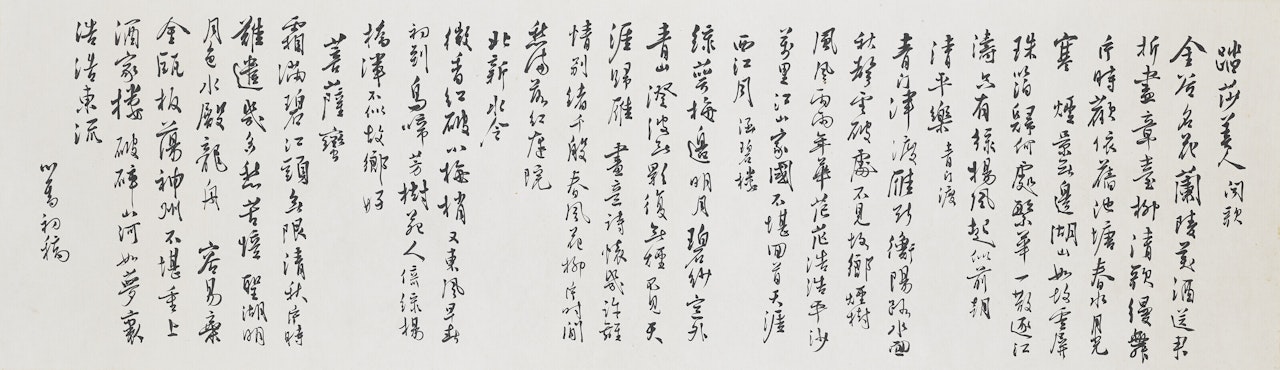 踏莎美人 閒歌
金谷名花蘭陵美酒送君
折盡章臺柳清歌緩舞
片時歡依舊池塘春水月光
寒 煙景無邊湖山如故雲屏
珠箔歸何處繁華一散逐江
濤只有綠楊風起似前朝
清平樂 青門渡
青門津渡雁斷衡陽路水面
秋聲雲破處不見故鄉煙樹
風風雨雨年華茫茫浩浩平沙
萬里江山家國不堪回首天涯
西江月 涵碧樓
綠萼梅邊明月碧紗窗外
青山澄波無影復無煙不見天
涯歸雁 畫意詩懷幾許離
情別緒千般春風花柳片時間
愁滿落紅庭院
北新水令
微青紅破小梅梢又東風早春
初到鳥啼芳樹花人倚綠楊
橋渾不似故鄉好
菩薩蠻
霜滿碧江頭無限清秋片時
難遣幾多愁苦憶聖湖明
月色水殿龍舟 容易棄
金甌板蕩神州不堪重上
酒家樓破碎山河如夢裏
浩浩東流
心畬初稿